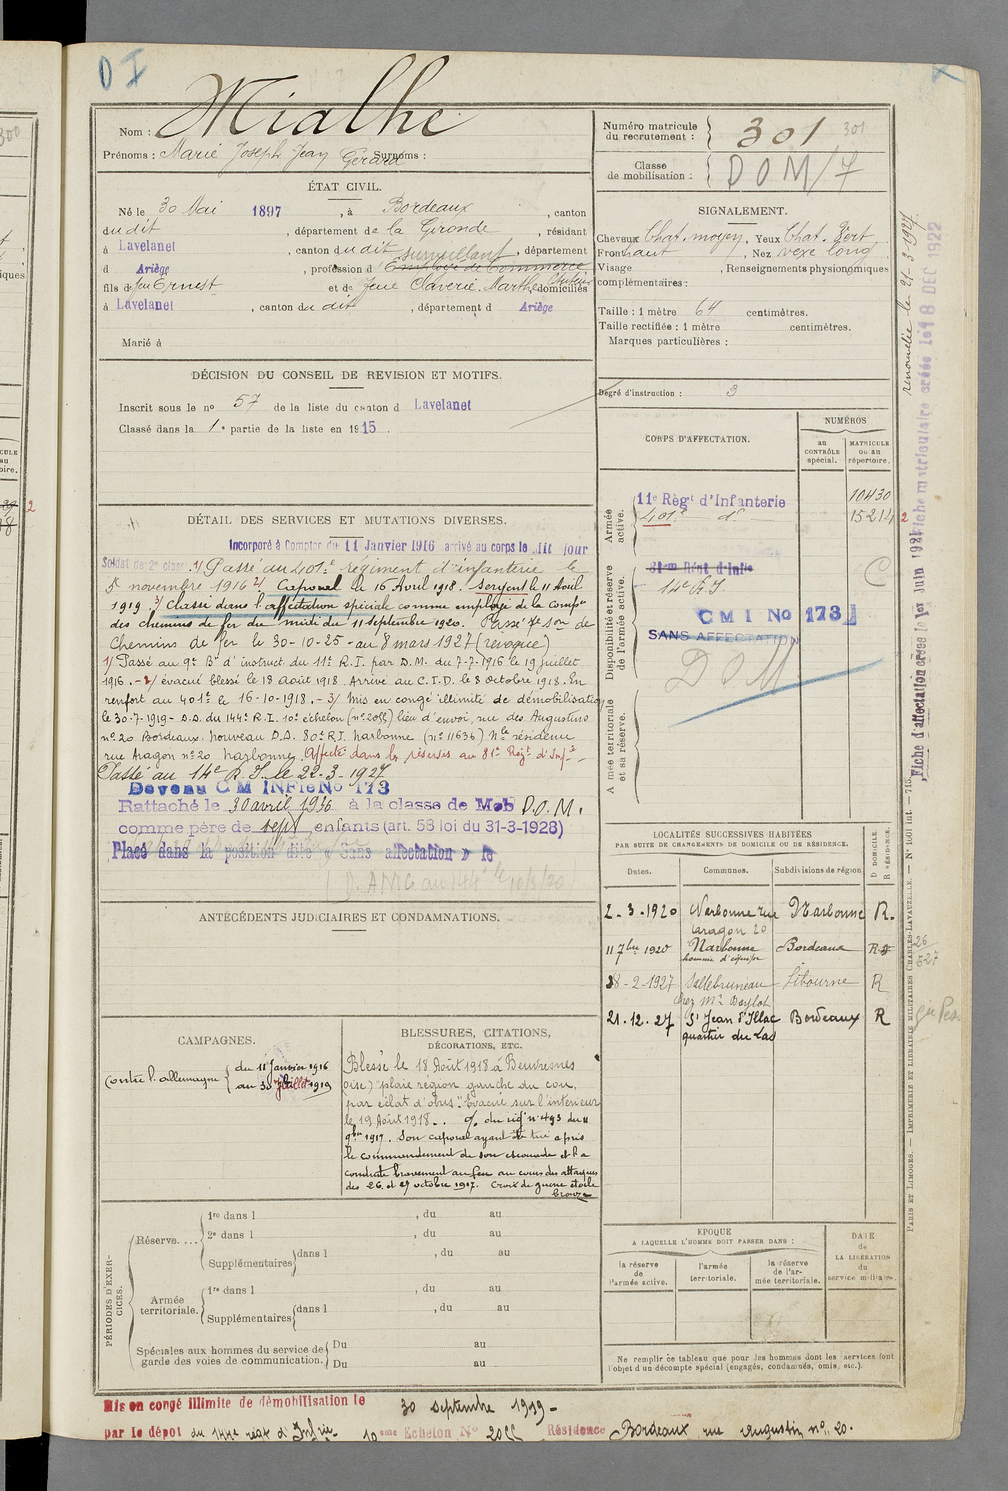 D I
Nom : Mialhe
Prénoms : Marie Joseph Jean Gérard Surnoms :
Numéro matricule du recrutement : 301 301
Classe de mobilisation : DOM/7
ÉTAT CIVIL.
Né le 30 Mai 1897, à Bordeaux, canton
du dit, département de la Gironde, résidant
à Lavelanet, canton du dit, département
surveillant
d Ariège, profession d'Employé de Commerce
fils de feu Ernest et de feue Claverie, Marthe, domiciliés
à Lavelanet, canton du dit, département d Ariège
Marié à
SIGNALEMENT.
Cheveux Chat. moyen, Yeux Chat. Vert
Front haut, Nez vexe long
Visage , Renseignements physionomiques
complémentaires :
Taille : 1 mètre 64 centimètres.
Taille rectifiée : 1 mètre centimètres.
Marques particulières :
Degré d'instruction : 3
DÉCISION DU CONSEIL DE REVISION ET MOTIFS.
Inscrit sous le no 57 de la liste du canton d Lavelanet
Classé dans la 1e partie de la liste en 1915.
CORPS D'AFFECTATION.
NUMÉROS
au CONTRÔLE spécial.
MATRICULE ou au répertoire.
Armée active.
11e Régt d'Infanterie 10430
401e do 15214 2
Disponibilité et réserve de l'armée active.
81eme Régt d'Infie
14e R.I. C
CMI No 173
SANS AFFECTATION
DOM
Armée territoriale et sa réserve.
DÉTAIL DES SERVICES ET MUTATIONS DIVERSES.
Incorporé à Compter du 11 Janvier 1916 arrivé au corps le dit jour
Soldat de 2e classe 1/ Passé au 401e régiment d'infanterie le
1er novembre 1916 2/ Caporal le 16 Avril 1918. Sergent le 11 Avril
1919 3/ Classé dans l'affectation spéciale comme employé de la Compie
des chemins de fer du midi du 11 septembre 1920. Passé 4e Son de
Chemins de fer le 30-10-25 - au 8 mars 1927 (révoqué)
1/ Passé au 9e Bon d'instruct du 11e R.I. par D.M. du 7-7-1916 le 19 juillet
1916. - 2/ évacué blessé le 18 août 1918. Arrivé au C.I.D. le 8 Octobre 1918. En
renfort au 401e le 16-10-1918. - 3/ Mis en congé illimité de démobilisation
le 30-7-1919 - D.D. du 144e R.I. 10e échelon (no 2055) lieu d'envoi, rue des Augustins
no 20 Bordeaux. nouveau D.D. 80e R.I. Narbonne (no 11636) Nlle résidence
rue Aragon no 20 Narbonne. Affecté dans la réserve au 81e Régt d'Infie
Passé au 14e R.I. le 22-3-1927
Devenu CM INFie No 173
Rattaché le 30 avril 1936 à la classe de Mob D.O.M.
comme père de sept enfants (art. 58 loi du 31-3-1928)
Placé dans la position dite « Sans affectation » le
ANTÉCÉDENTS JUDICIAIRES ET CONDAMNATIONS.
LOCALITÉS SUCCESSIVES HABITÉES
PAR SUITE DE CHANGEMENTS DE DOMICILE OU DE RÉSIDENCE.
Dates. Communes. Subdivisions de région D DOMICILE. R RÉSIDENCE.
2-3-1920 Narbonne rue Aragon 20 Narbonne R.
11 7bre 1920 Narbonne homme d'équipe Bordeaux R
28-2-1927 Sallebruneau chez Mr Baylot Libourne R
21.12.27 St Jean d'Illac quartier du Las Bordeaux R
CAMPAGNES.
Contre l'allemagne { du 11 Janvier 1916
au 30 Juillet 1919
BLESSURES, CITATIONS,
DÉCORATIONS, ETC.
Blessé le 18 Août 1918 à Beuvresnes
(oise) plaie région gauche du cou,
par éclat d'obus". Évacué sur l'intérieur
le 19 Août 1918. O/ du rég no 493 du 11
9bre 1917. Son caporal ayant été tué a pris
le commandement de son escouade et l'a
conduite bravement au feu au cours des attaques
des 26 et 27 octobre 1917. Croix de guerre étoile
bronze
PÉRIODES D'EXERCICES.
Réserve....
1re dans l , du au
2e dans l , du au
Supplémentaires dans l , du au
Armée territoriale.
1re dans l , du au
Supplémentaires dans l , du au
Spéciales aux hommes du service de garde des voies de communication.
Du au
Du au
ÉPOQUE
A LAQUELLE L'HOMME DOIT PASSER DANS :
la réserve de l'armée active.
l'armée territoriale.
la réserve de l'armée territoriale.
DATE de LA LIBÉRATION du service militaire.
Ne remplir ce tableau que pour les hommes dont les services font
l'objet d'un décompte spécial (engagés, condamnés, omis, etc.).
Mis en congé illimité de démobilisation le 30 septembre 1919 -
par le dépôt du 144e régt d'Infie 10eme Echelon No 2055 Résidence Bordeaux rue Augustin no 20.
renouvelée le 21-3-1927
Fiche matriculaire créée le 18 DEC 1922
Fiche d'affectation créée le 1er Juin 1921
PARIS ET LIMOGES. — IMPRIMERIE ET LIBRAIRIE MILITAIRES CHARLES-LAVAUZELLE. — No 1001 int. — 715.